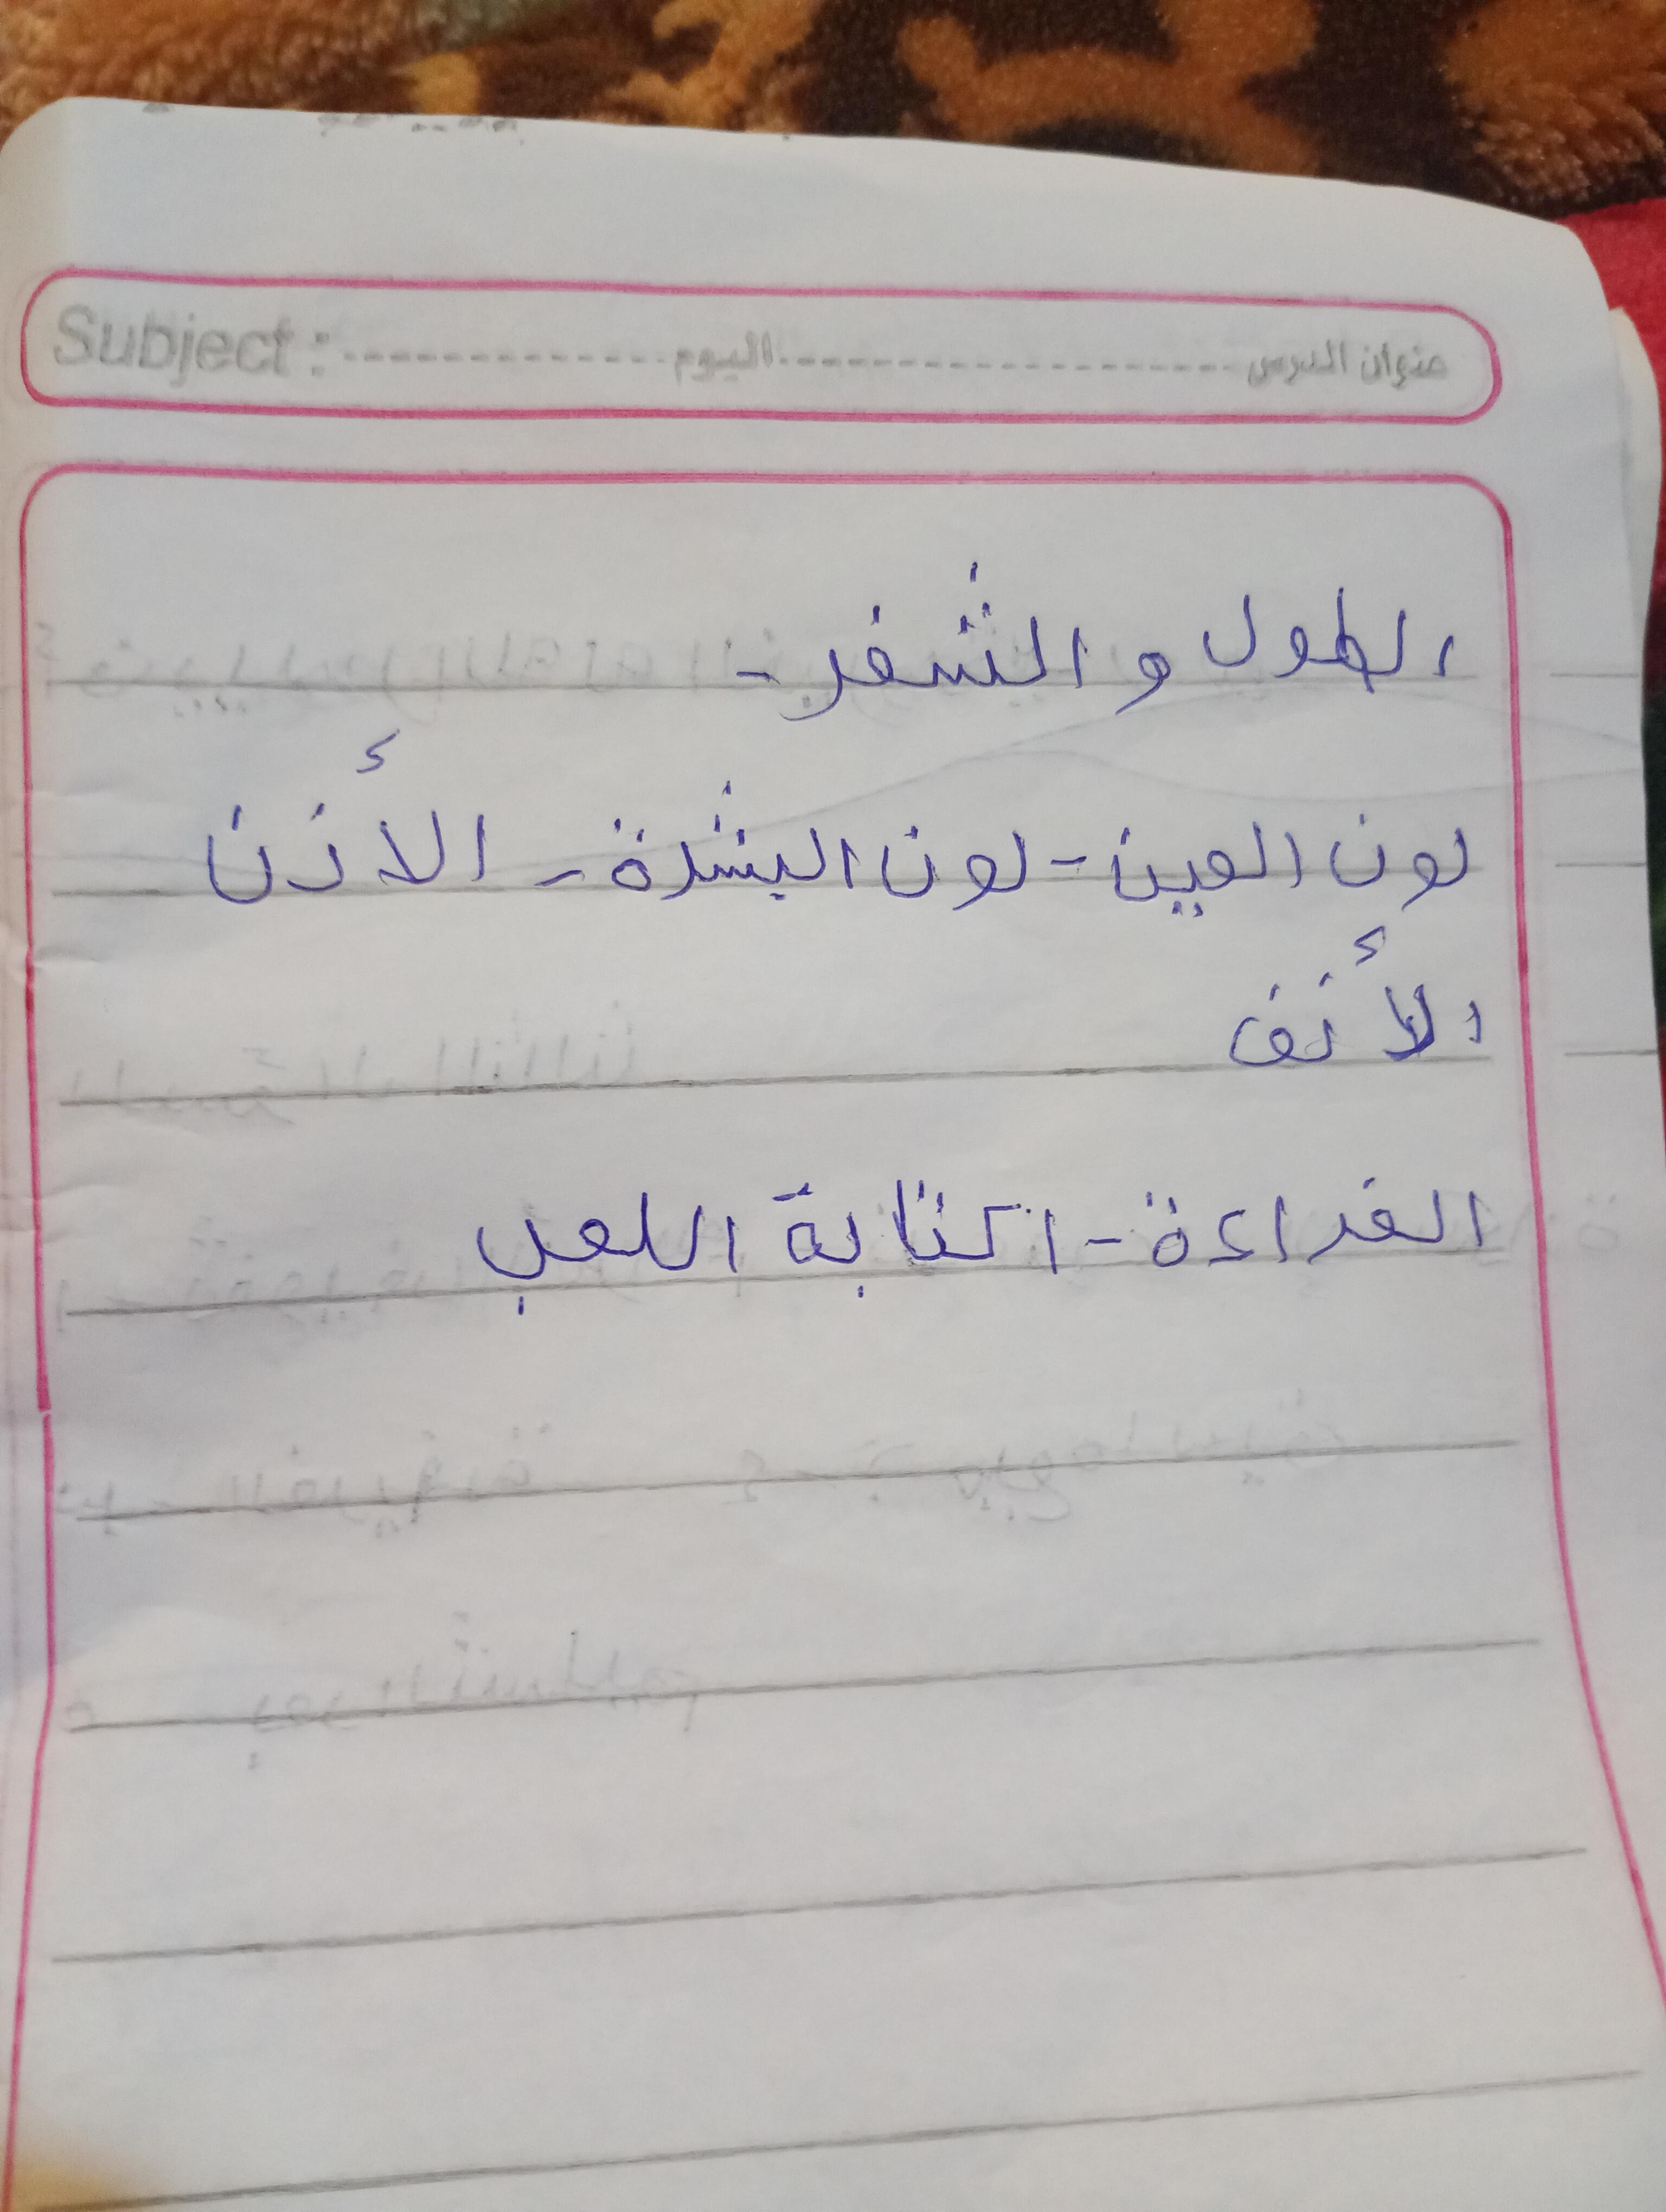 Subject : اليوم عنوان الدرس
الطول و الشفر -
لون العين - لون البشرة - الأذن
الأنف
القراءة - اكتابة اللعب